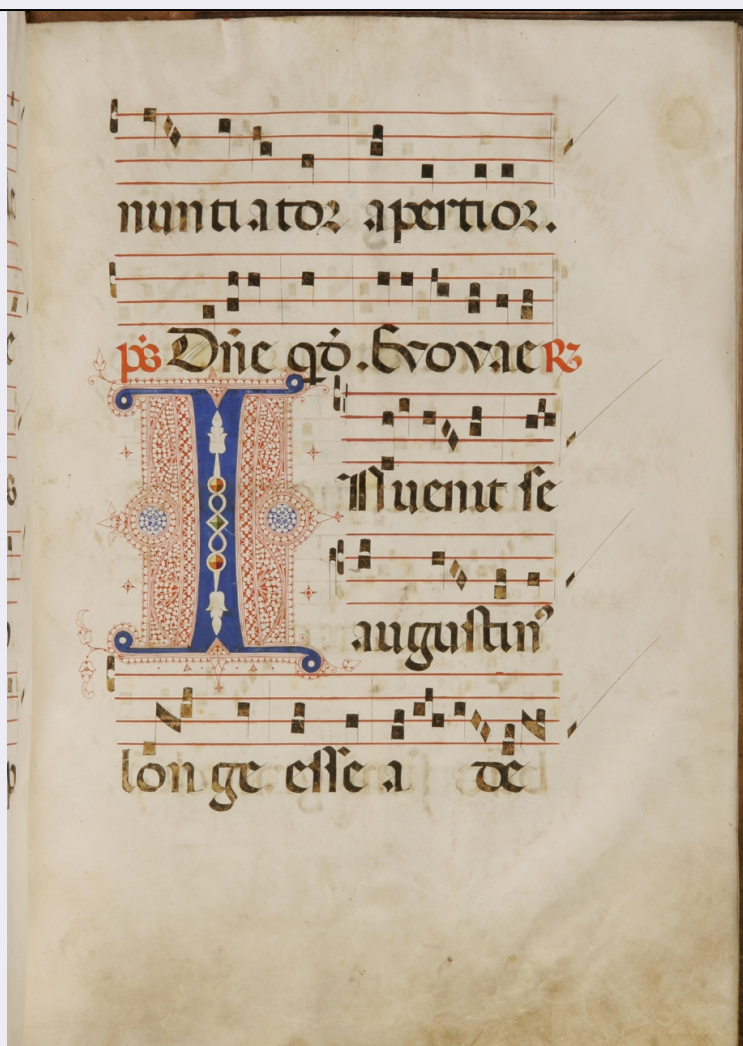 nuntiator apertior.
ps Dñe qd. Evovae R
INuenit se
augustin⁹
longe esse a de